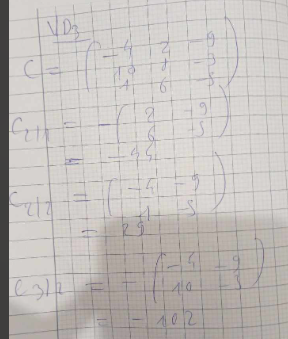 VD3
C = ( -4 2 -9
10 1 -3
1 6 -5 )
C2/1 = - ( 2 -9
6 -5 )
= -44
C2/2 = ( -4 -9
1 -5 )
= 29
C3/2 = - ( -4 -9
10 -3 )
= -102